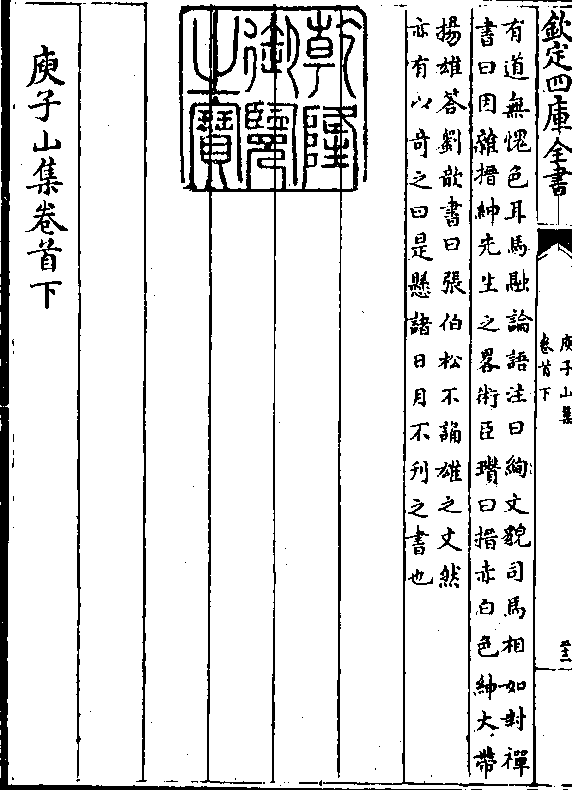 欽定四庫全書
庾子山集
卷首下
有道無愧色耳馬融論語注曰絢文貌司馬相如封禪
書曰因雜搢紳先生之畧術臣瓚曰搢赤白色紳大帶
揚雄答劉歆書曰張伯松不誦雄之文然
亦有以竒之曰是懸諸日月不刋之書也
乾隆
御覽
之寶
庾子山集卷首下